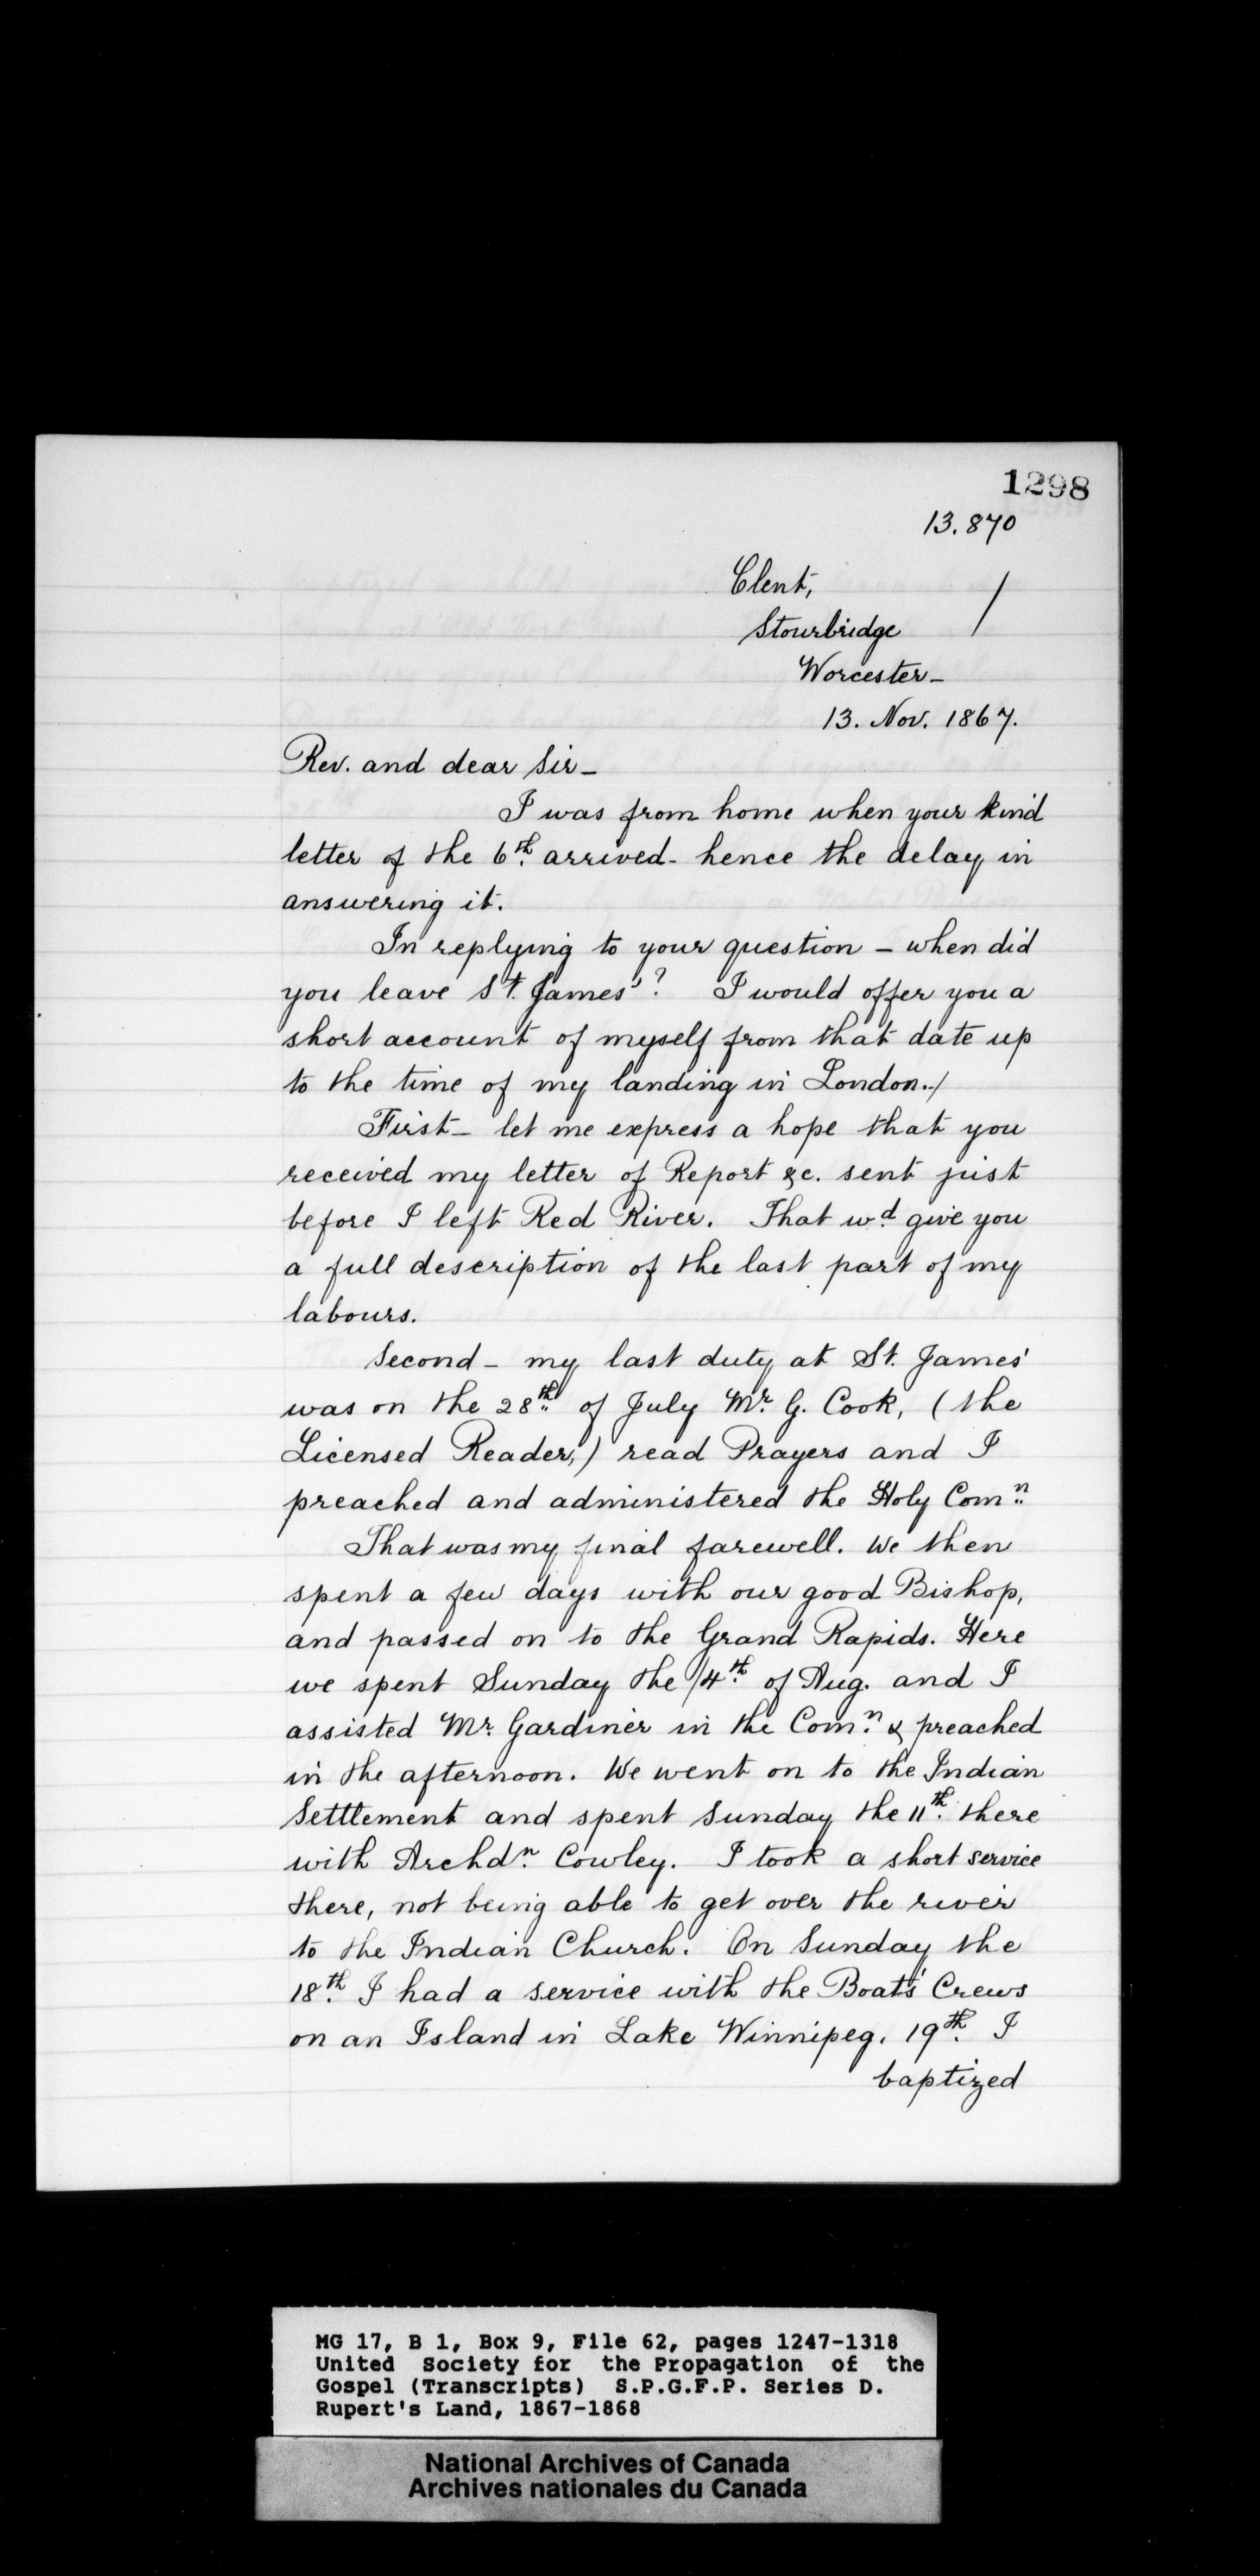 1298
13.870
Clent,
Stourbridge /
Worcester_
13. Nov. 1867.
Rev. and dear Sir_
I was from home when your kind
letter of the 6th. arrived - hence the delay in
answering it.
In replying to your question - when did
you leave St. James'? I would offer you a
short account of myself from that date up
to the time of my landing in London./
First - let me express a hope that you
received my letter of Report &c. sent just
before I left Red River. That wd. give you
a full description of the last part of my
labours.
Second - my last duty at St. James'
was on the 28th. of July Mr. G. Cook, (the
Licensed Reader,) read Prayers and I
preached and administered the Holy Comn.
That was my final farewell. We then
spent a few days with our good Bishop,
and passed on to the Grand Rapids. Here
we spent Sunday the 4th. of Aug. and I
assisted Mr. Gardiner in the Comn. & preached
in the afternoon. We went on to the Indian
Settlement and spent Sunday the 11th. there
with Archdn. Cowley. I took a short service
there, not being able to get over the river
to the Indian Church. On Sunday the
18th. I had a service with the Boats' Crews
on an Island in Lake Winnipeg. 19th. I
baptized
MG 17, B 1, Box 9, File 62, pages 1247-1318
United Society for the Propagation of the
Gospel (Transcripts) S.P.G.F.P. Series D.
Rupert's Land, 1867-1868
National Archives of Canada
Archives nationales du Canada